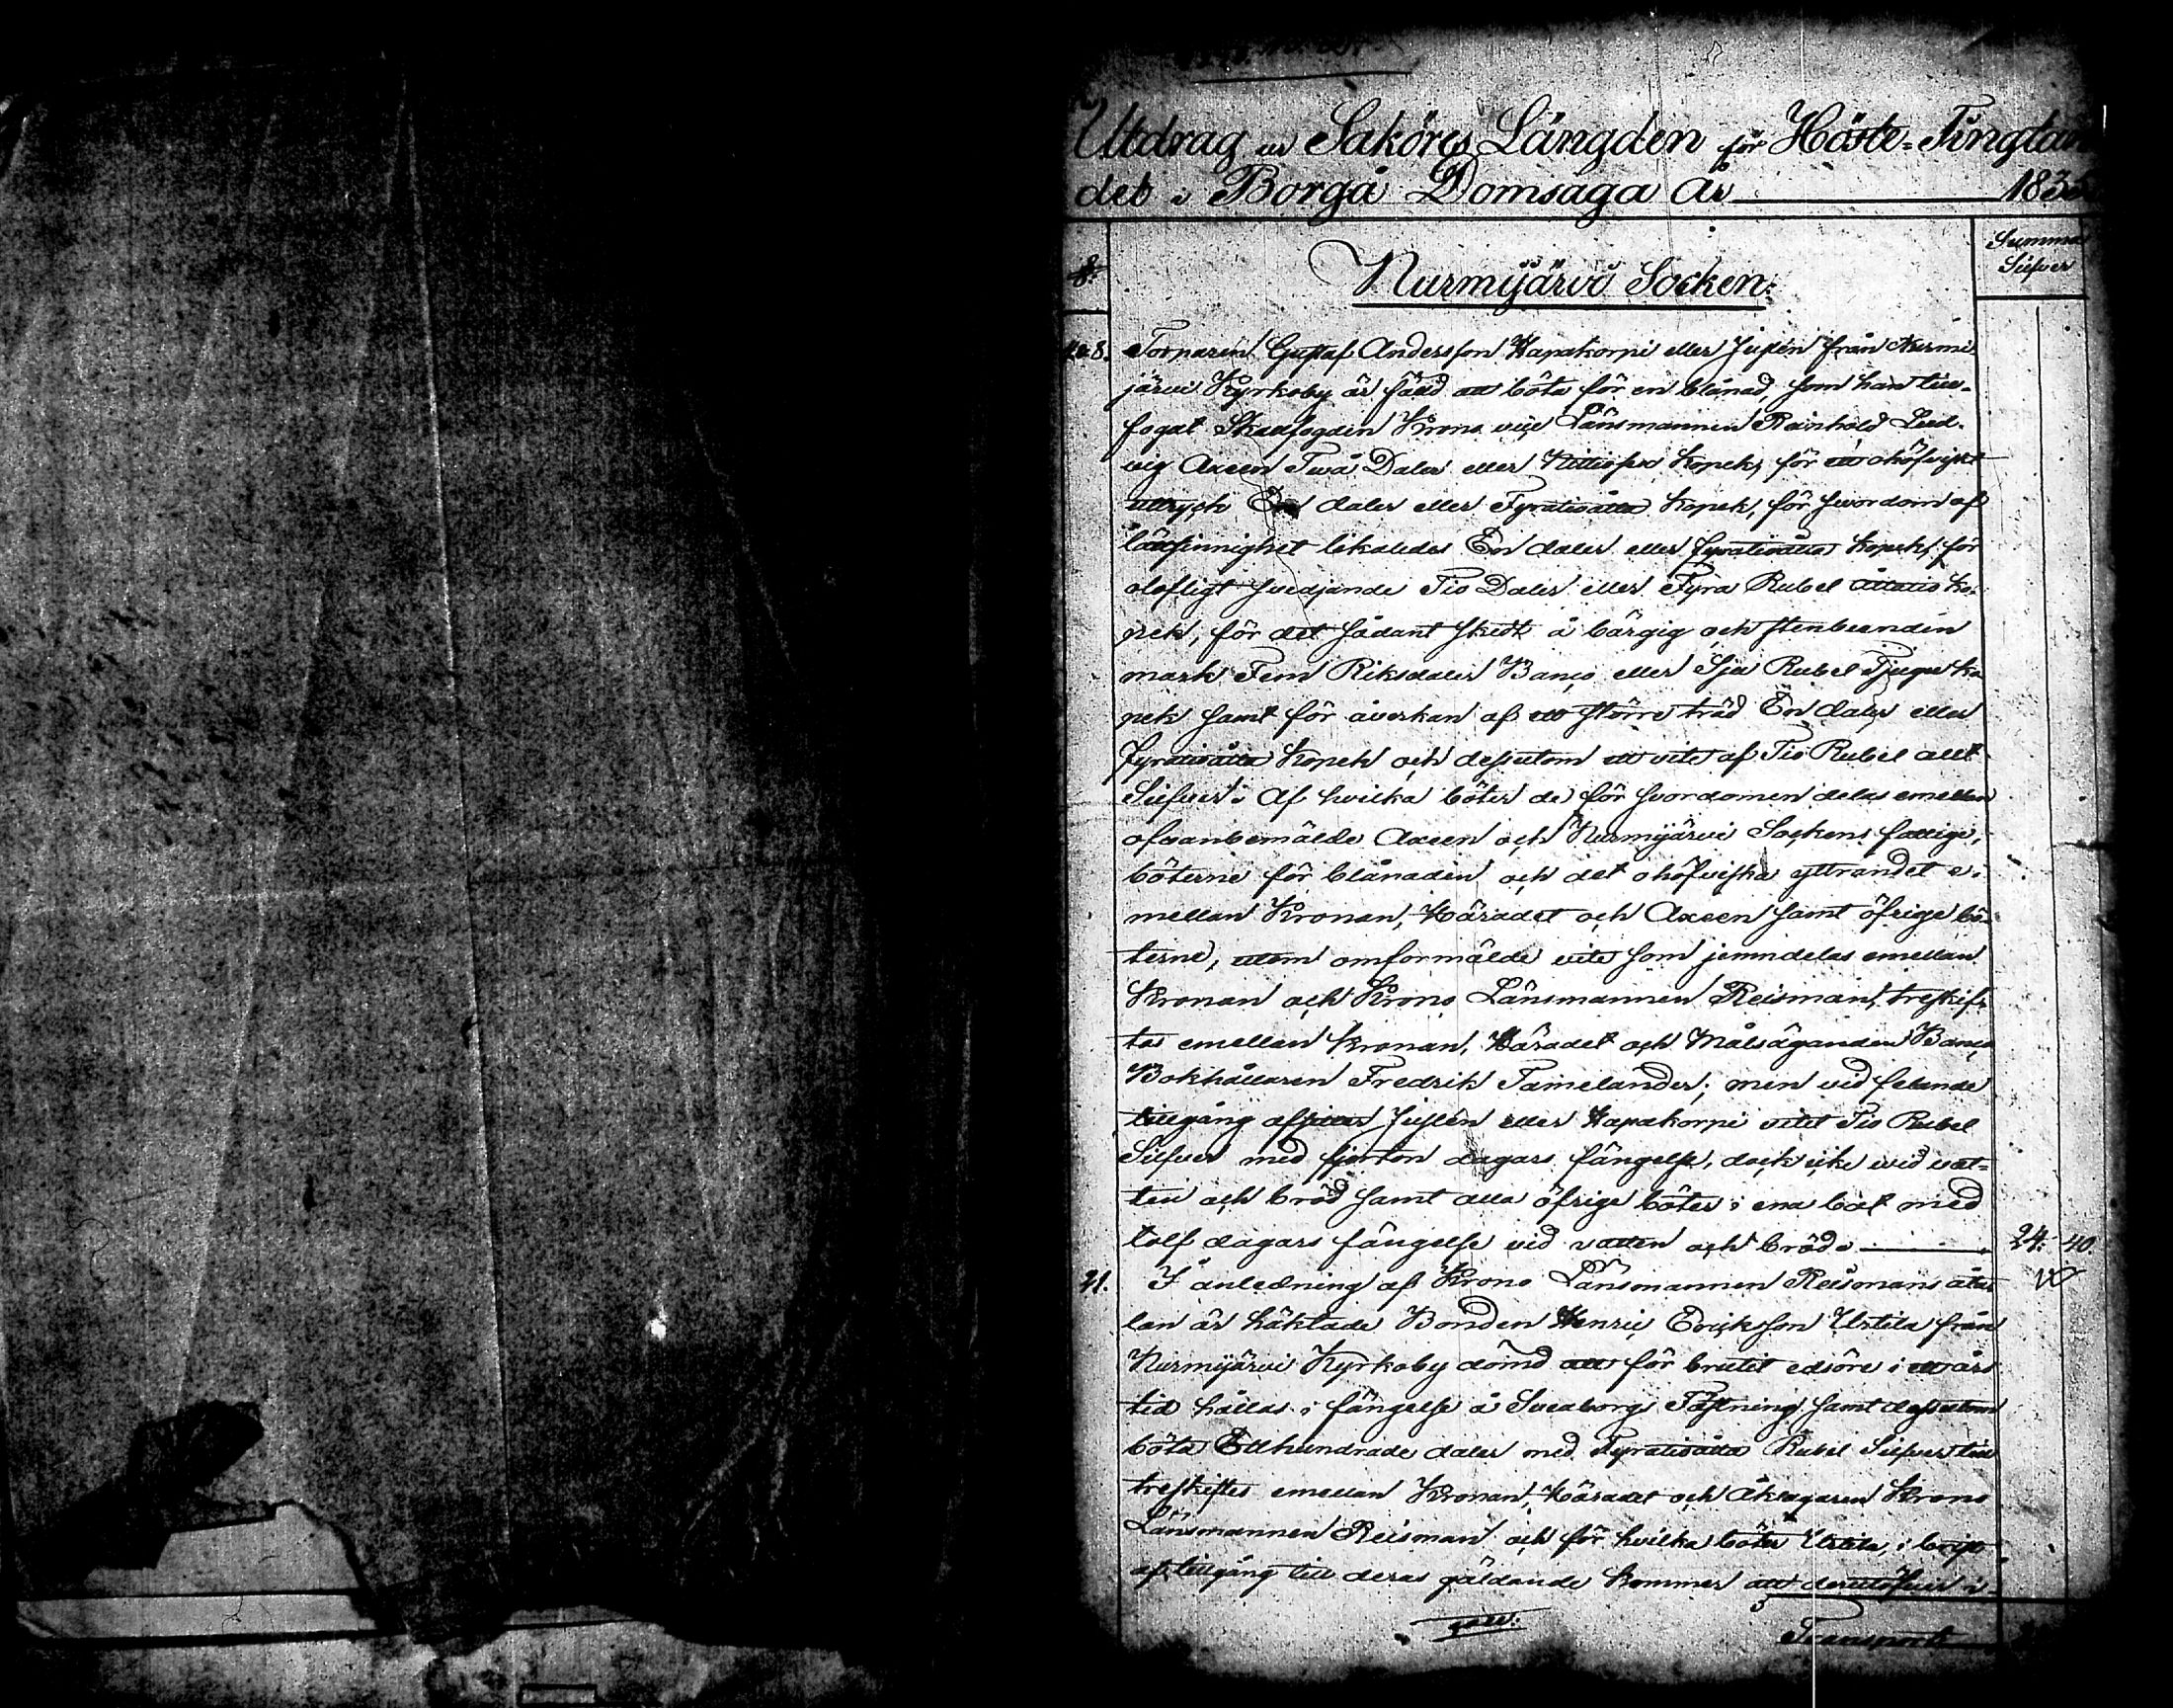 Utdrag ur Saköres Längden för Höste-Tingtan
det i Borgå Domsaga År 183
Summa
Silfver
§.
Nurmijärvi Socken:
8. Torparen Gustaf Andersson Hapakorpi eller Juslén från Nurmi
järvi Kyrkoby är fäld att böta för en blånad, som han till-
fogat Skallfogden Krono vice Länsmannen Reinhold Lud-
vig Axeen Två Daler eller Nittiosex Kopek, för ett ohöfviskt
uttryck En daler eller Fyratioåtta Kopek, för svordom af
lättsinnighet likaledes En daler eller fyratioåtta kopek, för
olofligt svedjande Tio Daler eller Fyra Rubel åttatio ko-
pek, för det sådant skedt å bärgig och stenbunden
mark Fem Riksdaler Banco eller Sju Rubel Tjugu ko
pek samt för åverkan af ett större träd En daler eller
fyratioåtta Kopek och dessutom ett vite af Tio Rubel allt
Silfver; Af hvilka böter de för svordomen delas emellan
ofvanbemälde Axeen och Nurmijärvi Sockens fattige,
böterne för blånaden och det ohöfviska yttrandet e-
mellan Kronan, Häradet och Axeen samt öfrige bö-
terne, utom omförmälde vite som jemndelas emellan
Kronan och Krono Länsmannen Reisman, treskif-
tas emellan Kronan, Häradet och Målsäganden Banco
Bokhållaren Fredrik Taimelander; men vid felande
tillgång afsitter Juslén eller Hapakorpi vitet Tio Rubel
Silfver med fjorton dagars fängelse, dock icke vid vat-
ten och bröd samt alla öfrige böter i ena bot med
tolf dagars fängelse vid vatten och bröd. 24: 40
21. I anledning af Krono Länsmannen Reismans åta
lan är häktade Bonden Henric Ericksson Uotila från
Nurmijärvi Kyrkoby dömd att för brutit edsöre i ett års
tid hållas i fängelse å Sveaborgs Fästning samt dessutom
böta Etthundrade daler med Fyratioåtta Rubel Silfver till
treskiftes emellan Kronan, Häradet och Åklagaren Krono
Länsmannen Reisman och för hvilka böter Uotila, i brist
af tillgång till deras gäldande kommer att derutöfver i-
Transport